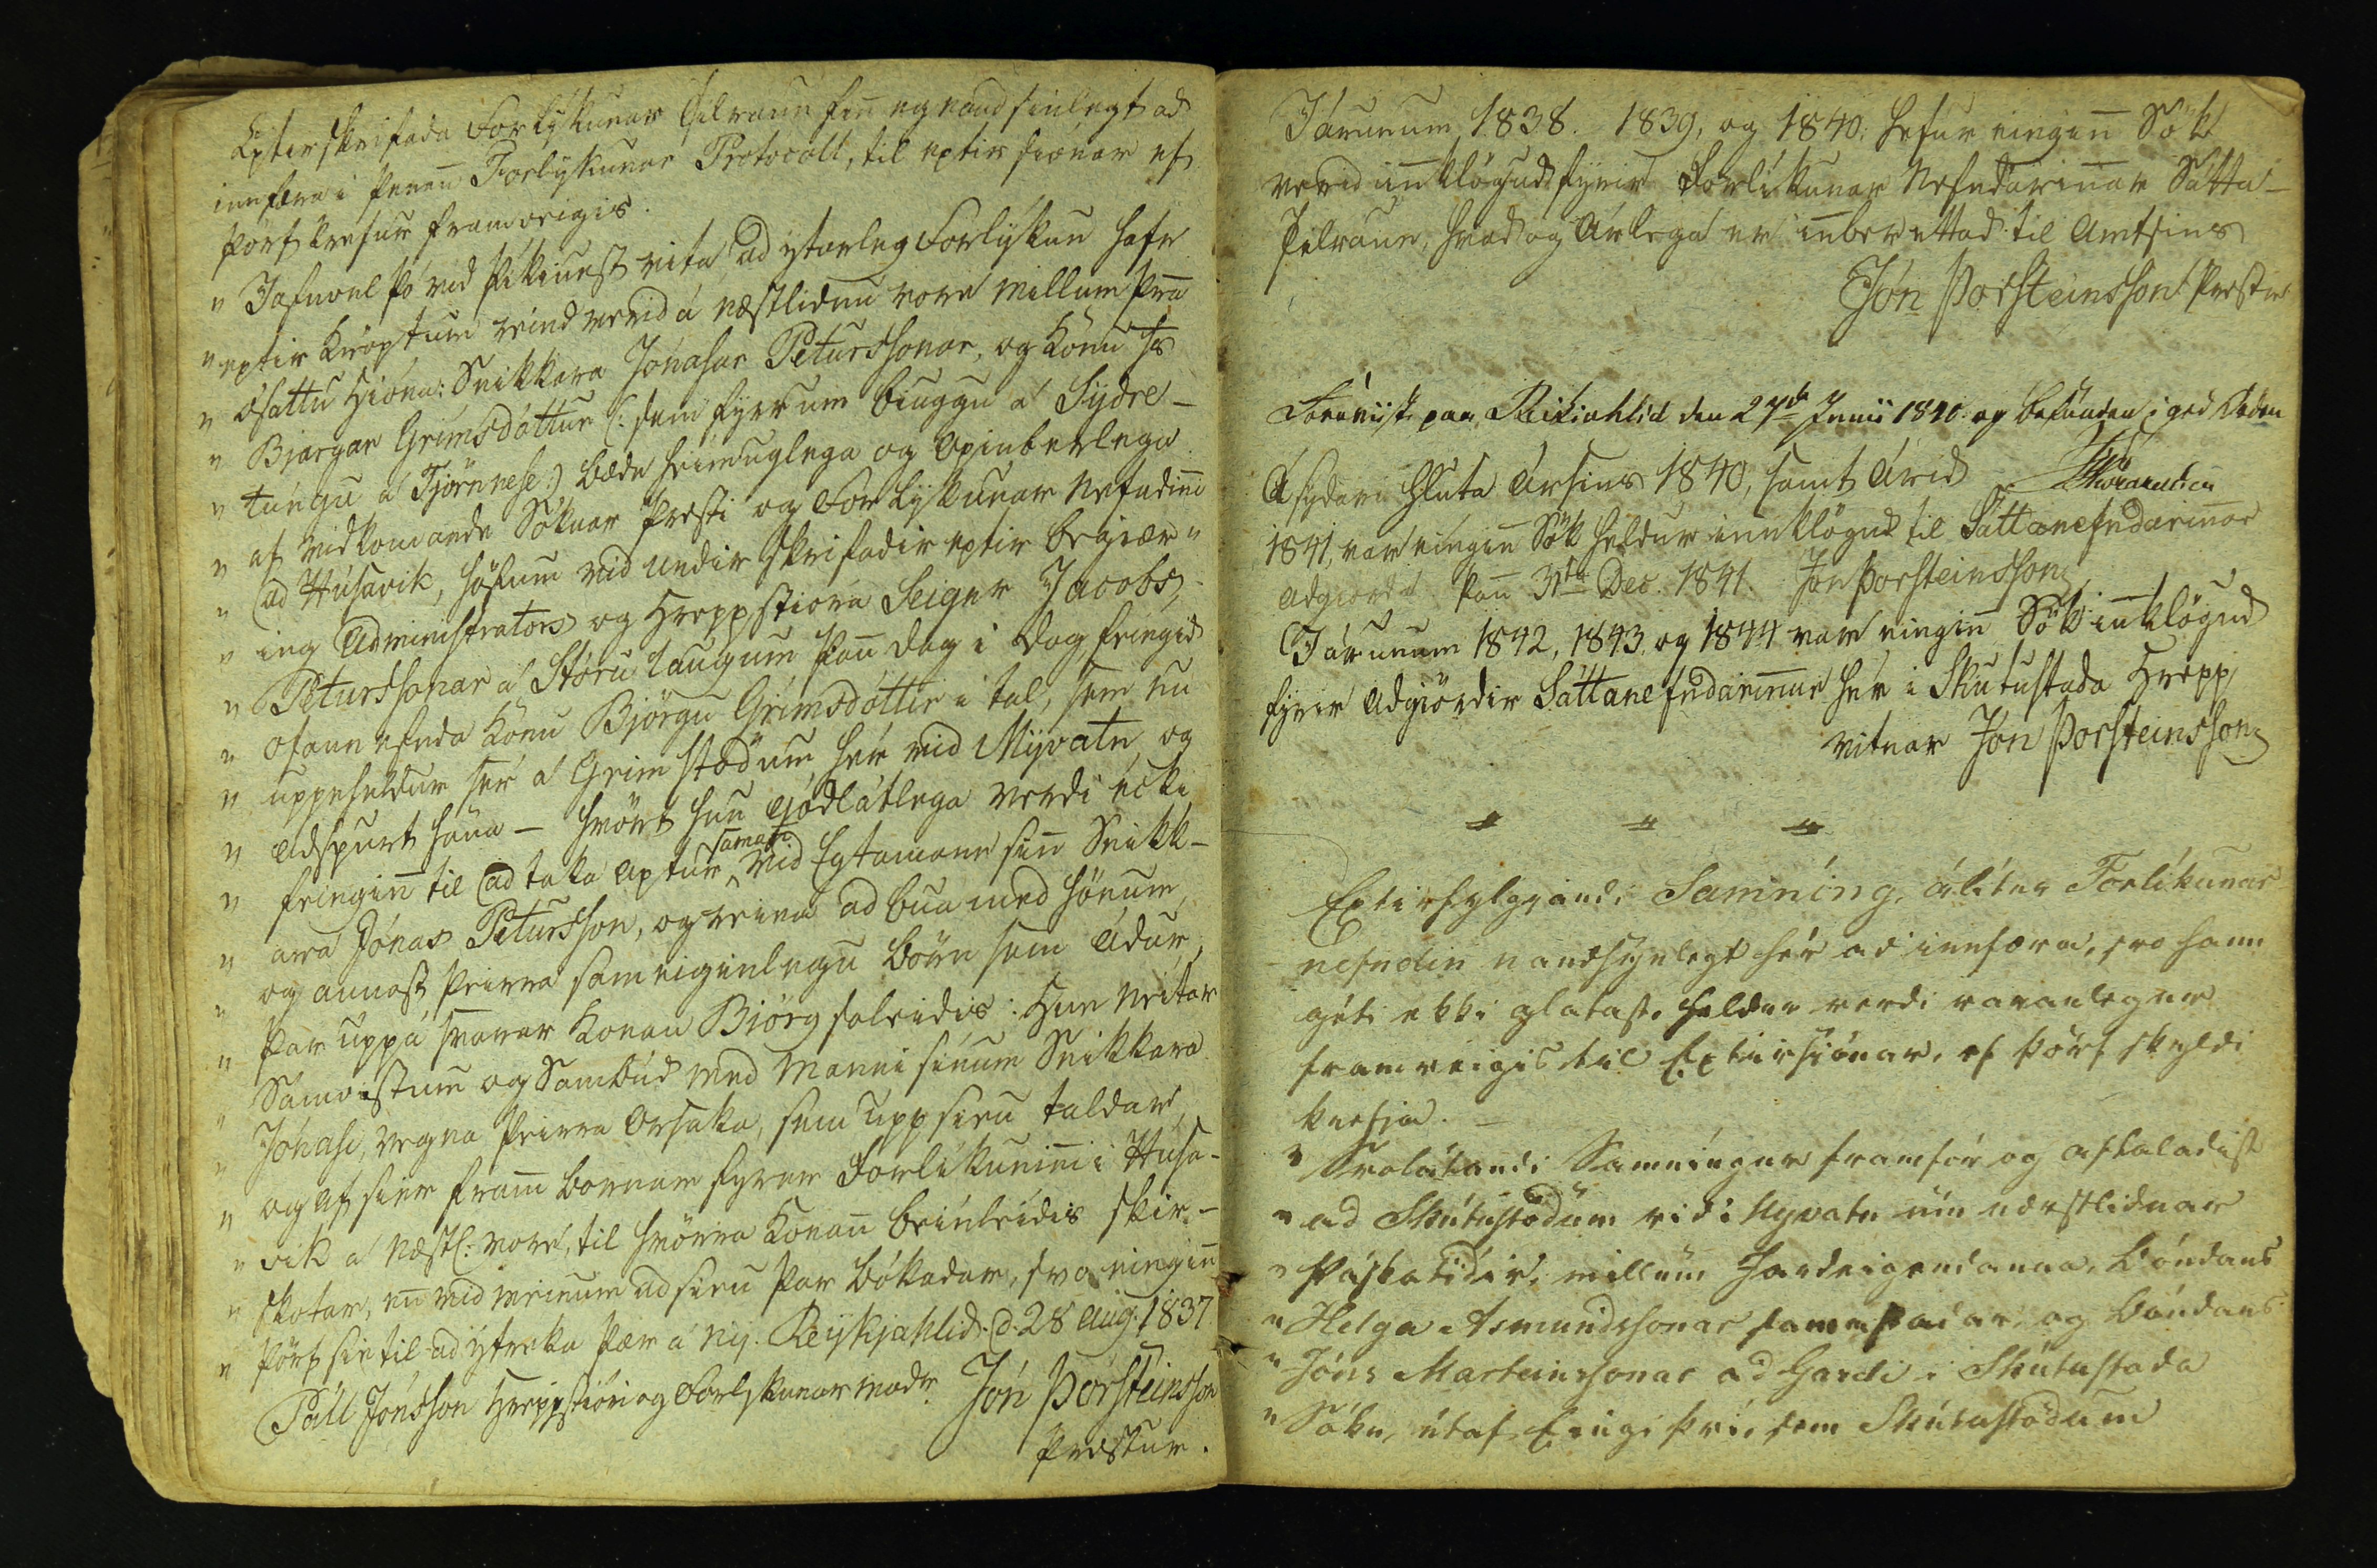 Eptirskrifada Forlýkunar tilraun finn eg naudsinlegt ad
innfæra i þenna Forlýkunar Protocoll, til eptirsiónar ef
þörf krefur framveigis.
" Jafnvel þó vid þikiunst vita ad ýtarleg Forlýkun hafe
" eptir kröptum reind verid á næstlidnu vore millum þra
" ósáttu Hióna: Snikkara Jónasar Péturssonar, og Konu hs
" Bjargar Grímsdóttur (: sem fyrrum biuggu á Sydre-
" túngu á Tjörnnese:) bæde heimuglega og opinberlega
" af vidkomande Sóknar Presti og Forlýkunar Nefndinni
" ad Húsavik, höfum vid undirskrifadir eptir begiær-
" ing Administrators og Hreppstióra Seigr Jacobs
" Péturssonar á Stóru laugum þan dag i dag feingid
" ofannefnda Konu Björgu Grímsdóttir i tal, sem nu
" uppeheldur sér á Grimstödum her vid Mývatn og
" adspurt hana — hvört hun gódlátlega verdi ecki
" feinginn til ad taka aptur saman vid Egtamann sinn Snikk-
" ara Jónas Pétursson, og reina ad bua med hönum,
" og annast þeirra sameiginlegu börn sem ádur,
" Þar uppá svarar Konan Biörg soleidis: Hun neitar
" Samvistum og Sambúd med Manni sínum Snikkara
" Jónasi, vegna þeirra orsaka, sem uppsieu taldar,
" og af sier fram bornar fyrer Forlikuninni i Húsa-
" vik á næstl: vore, til hvörra Konan beinleidis skir-
" skotar, en vid meinum ad sieu þar bókadar, svo eingin
" þörf sie til ad ýtreka þær á ný. Reykjahlid d. 28 Aug. 1837
Páll Jónsson Hreppstióri og Forlýkunar madr. Jón Þorsteinsson
Prestur.
Járunum 1838. 1839, og 1840: hefur einginn Sök
verid innklögud fyrir Forlíkunar Nefndarinnar Sátta-
tilraun, hvad og árlega er inberettad til Amtsins
Jón Þorsteinsson Prestur
Foreviist paa Reikiahlid den 27de Junii 1840 og befunden i god Orden
Á sydari hluta ársins 1840, samt árid
1841, var eingin Sök heldur innklögud til Sáttanefndarinnar
adgiorda þan 31ta Dec. 1841. Jón Þorsteinsson
Járunum 1842, 1843 og 1844 var eingin Sök innklögud
fyrir adgiördir Sáttanefndarinnar hér i Skutustada Hrepp
vitnar Jón Þorsteinsson
Eptirfylgjandi Samníng, álítur Forlíkunar-
nefndin naudsynlegt hér ad innfæra, svo hann
géti ekki glatast, heldur verdi varanlegur
framveigis til Eptirsiónar, ef þörf skyldi
krefja. —
" Svolátandi Samníngur framfór og aftaladist
" ad Skútustödum vid Mývatn um næstlidnar
" Páskatídir, millum Jardeigendanna, bóndans
" Helga Asmundssonar samastadar, og bóndans
" Jóns Marteinssonar ad Gardi i Skútustada
" Sókn, útaf Eingi því, sem Skútustödum